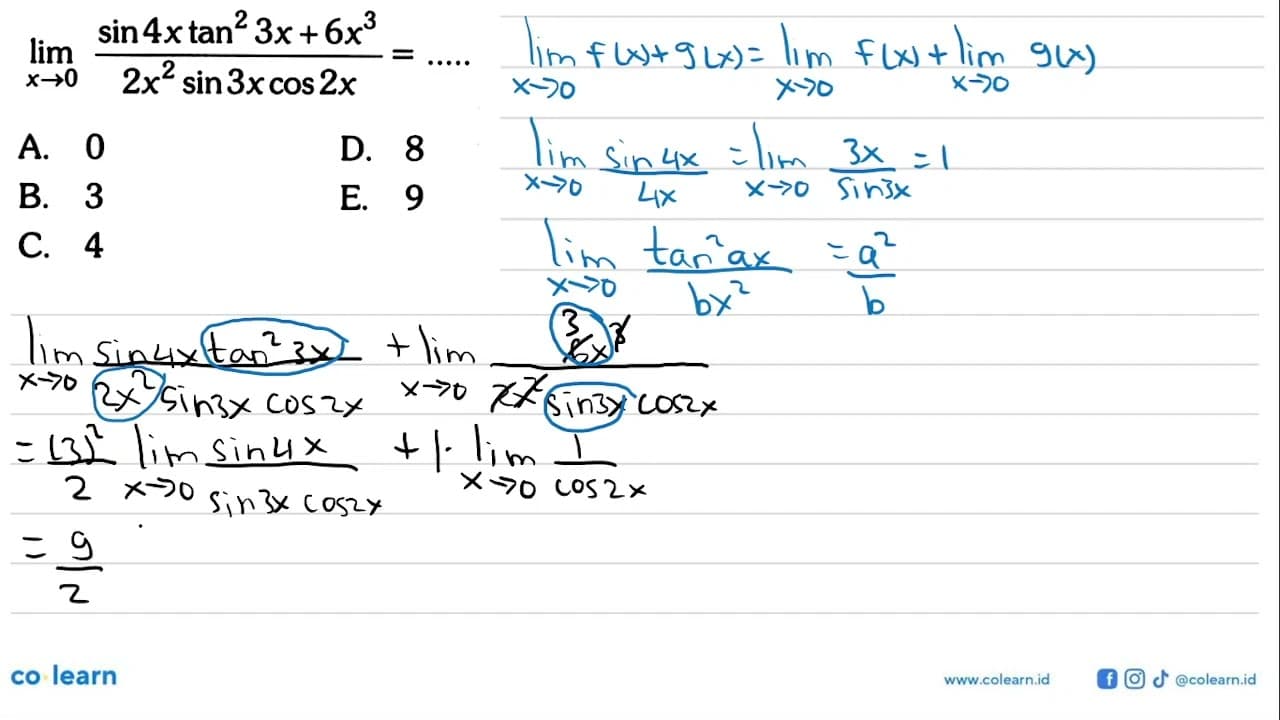 lim x→0 (sin 4x tan² 3x + 6x³)/(2x² sin 3x cos 2x) = .....
A. 0 D. 8
B. 3 E. 9
C. 4
lim x→0 f(x) + g(x) = lim x→0 f(x) + lim x→0 g(x)
lim x→0 sin 4x/4x = lim x→0 3x/sin3x = 1
lim x→0 tan² ax/bx² = a²/b
lim x→0 sin 4x tan² 3x/2x² sin3x cos2x + lim x→0 3 6x³/2x² sin3x cos2x
= (3)²/2 lim x→0 sin 4x/sin3x cos2x + 1. lim x→0 1/cos 2x
= 9/2
co learn
www.colearn.id @colearn.id